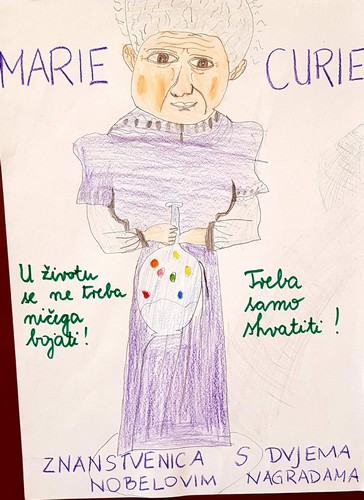 MARIE CURIE
U životu
se ne treba
ničega
bojati!
Treba
samo
shvatiti!
ZNANSTVENICA S DVJEMA
NOBELOVIM NAGRADAMA